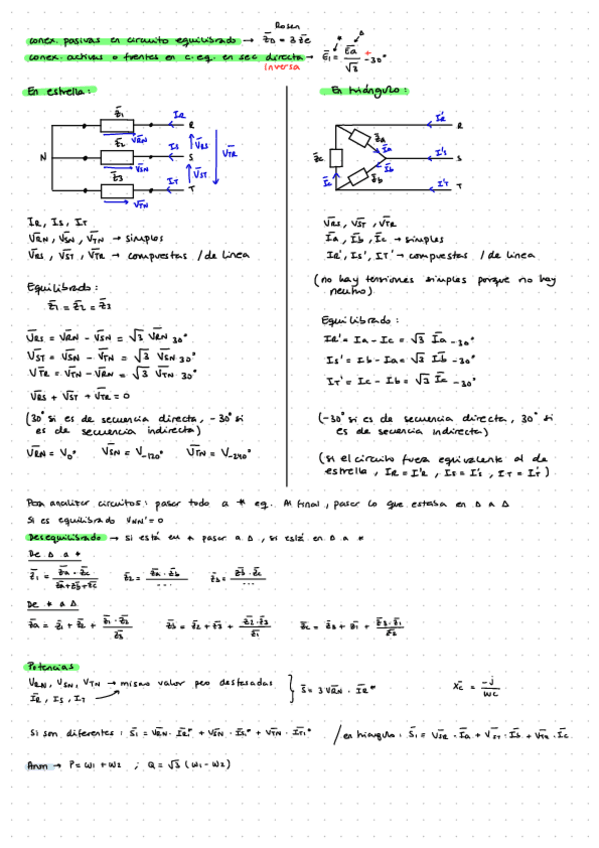 Rosen
conex. pasivas en circuito equilibrado → Z̄Δ = 3 Z̄e
conex. activas o fuentes en c. eq. en sec directa → Ē1 = Ēa / √3 -30°
* Δ
+
inversa
En estrella:
Z̄1
ĪR
R
V̄RN
V̄RS
Z̄2
N
ĪS
S
V̄TR
V̄SN
V̄ST
Z̄3
ĪT
T
V̄TN
ĪR, ĪS, ĪT
V̄RN, V̄SN, V̄TN → simples
V̄RS, V̄ST, V̄TR → compuestas / de línea
Equilibrado:
Z̄1 = Z̄2 = Z̄3
V̄RS = V̄RN - V̄SN = √3 V̄RN 30°
V̄ST = V̄SN - V̄TN = √3 V̄SN 30°
V̄TR = V̄TN - V̄RN = √3 V̄TN 30°
V̄RS + V̄ST + V̄TR = 0
(30° si es de secuencia directa, -30° si
es de secuencia indirecta)
V̄RN = V0° V̄SN = V-120° V̄TN = V-240°
En triángulo:
ĪR'
R
Z̄a
Īa
Z̄c
ĪS'
S
Īb
Īc
Z̄b
ĪT'
T
V̄RS, V̄ST, V̄TR
Īa, Īb, Īc → simples
IR', IS', IT' → compuestas / de línea
(no hay tensiones simples porque no hay
neutro)
Equilibrado:
IR' = Ia - Ic = √3 Īa -30°
IS' = Ib - Ia = √3 Īb -30°
IT' = Ic - Ib = √3 Īc -30°
(-30° si es de secuencia directa, 30° si
es de secuencia indirecta)
(si el circuito fuera equivalente al de
estrella, IR = I'R, IS = I'S, IT = I'T)
Para analizar circuitos: pasar todo a * eq. Al final, pasar lo que estaba en Δ a Δ
Si es equilibrado VNN' = 0
Desequilibrado → si está en * pasar a Δ, si está en Δ a *
De Δ a *
Z̄1 = Z̄a · Z̄c / Z̄a+Z̄b+Z̄c Z̄2 = Z̄a · Z̄b / ... Z̄3 = Z̄3 · Z̄c / ...
De * a Δ
Z̄a = Z̄1 + Z̄2 + Z̄1 · Z̄2 / Z̄3 Z̄3 = Z̄2 + Z̄3 + Z̄2 · Z̄3 / Z̄1 Z̄c = Z̄3 + Z̄1 + Z̄3 · Z̄1 / Z̄2
Potencias
VRN, VSN, VTN → mismo valor pero desfasadas } S̄ = 3 V̄RN · ĪR* X̄c = -j / WC
ĪR, IS, IT
Si son diferentes: S̄1 = V̄RN · ĪR* + V̄SN · ĪS* + V̄TN · ĪT* / en triángulo: S̄1 = VSR · Īa + VST · Īb + VTR · Īc
→ P = W1 + W2 ; Q = √3 (W1 - W2)